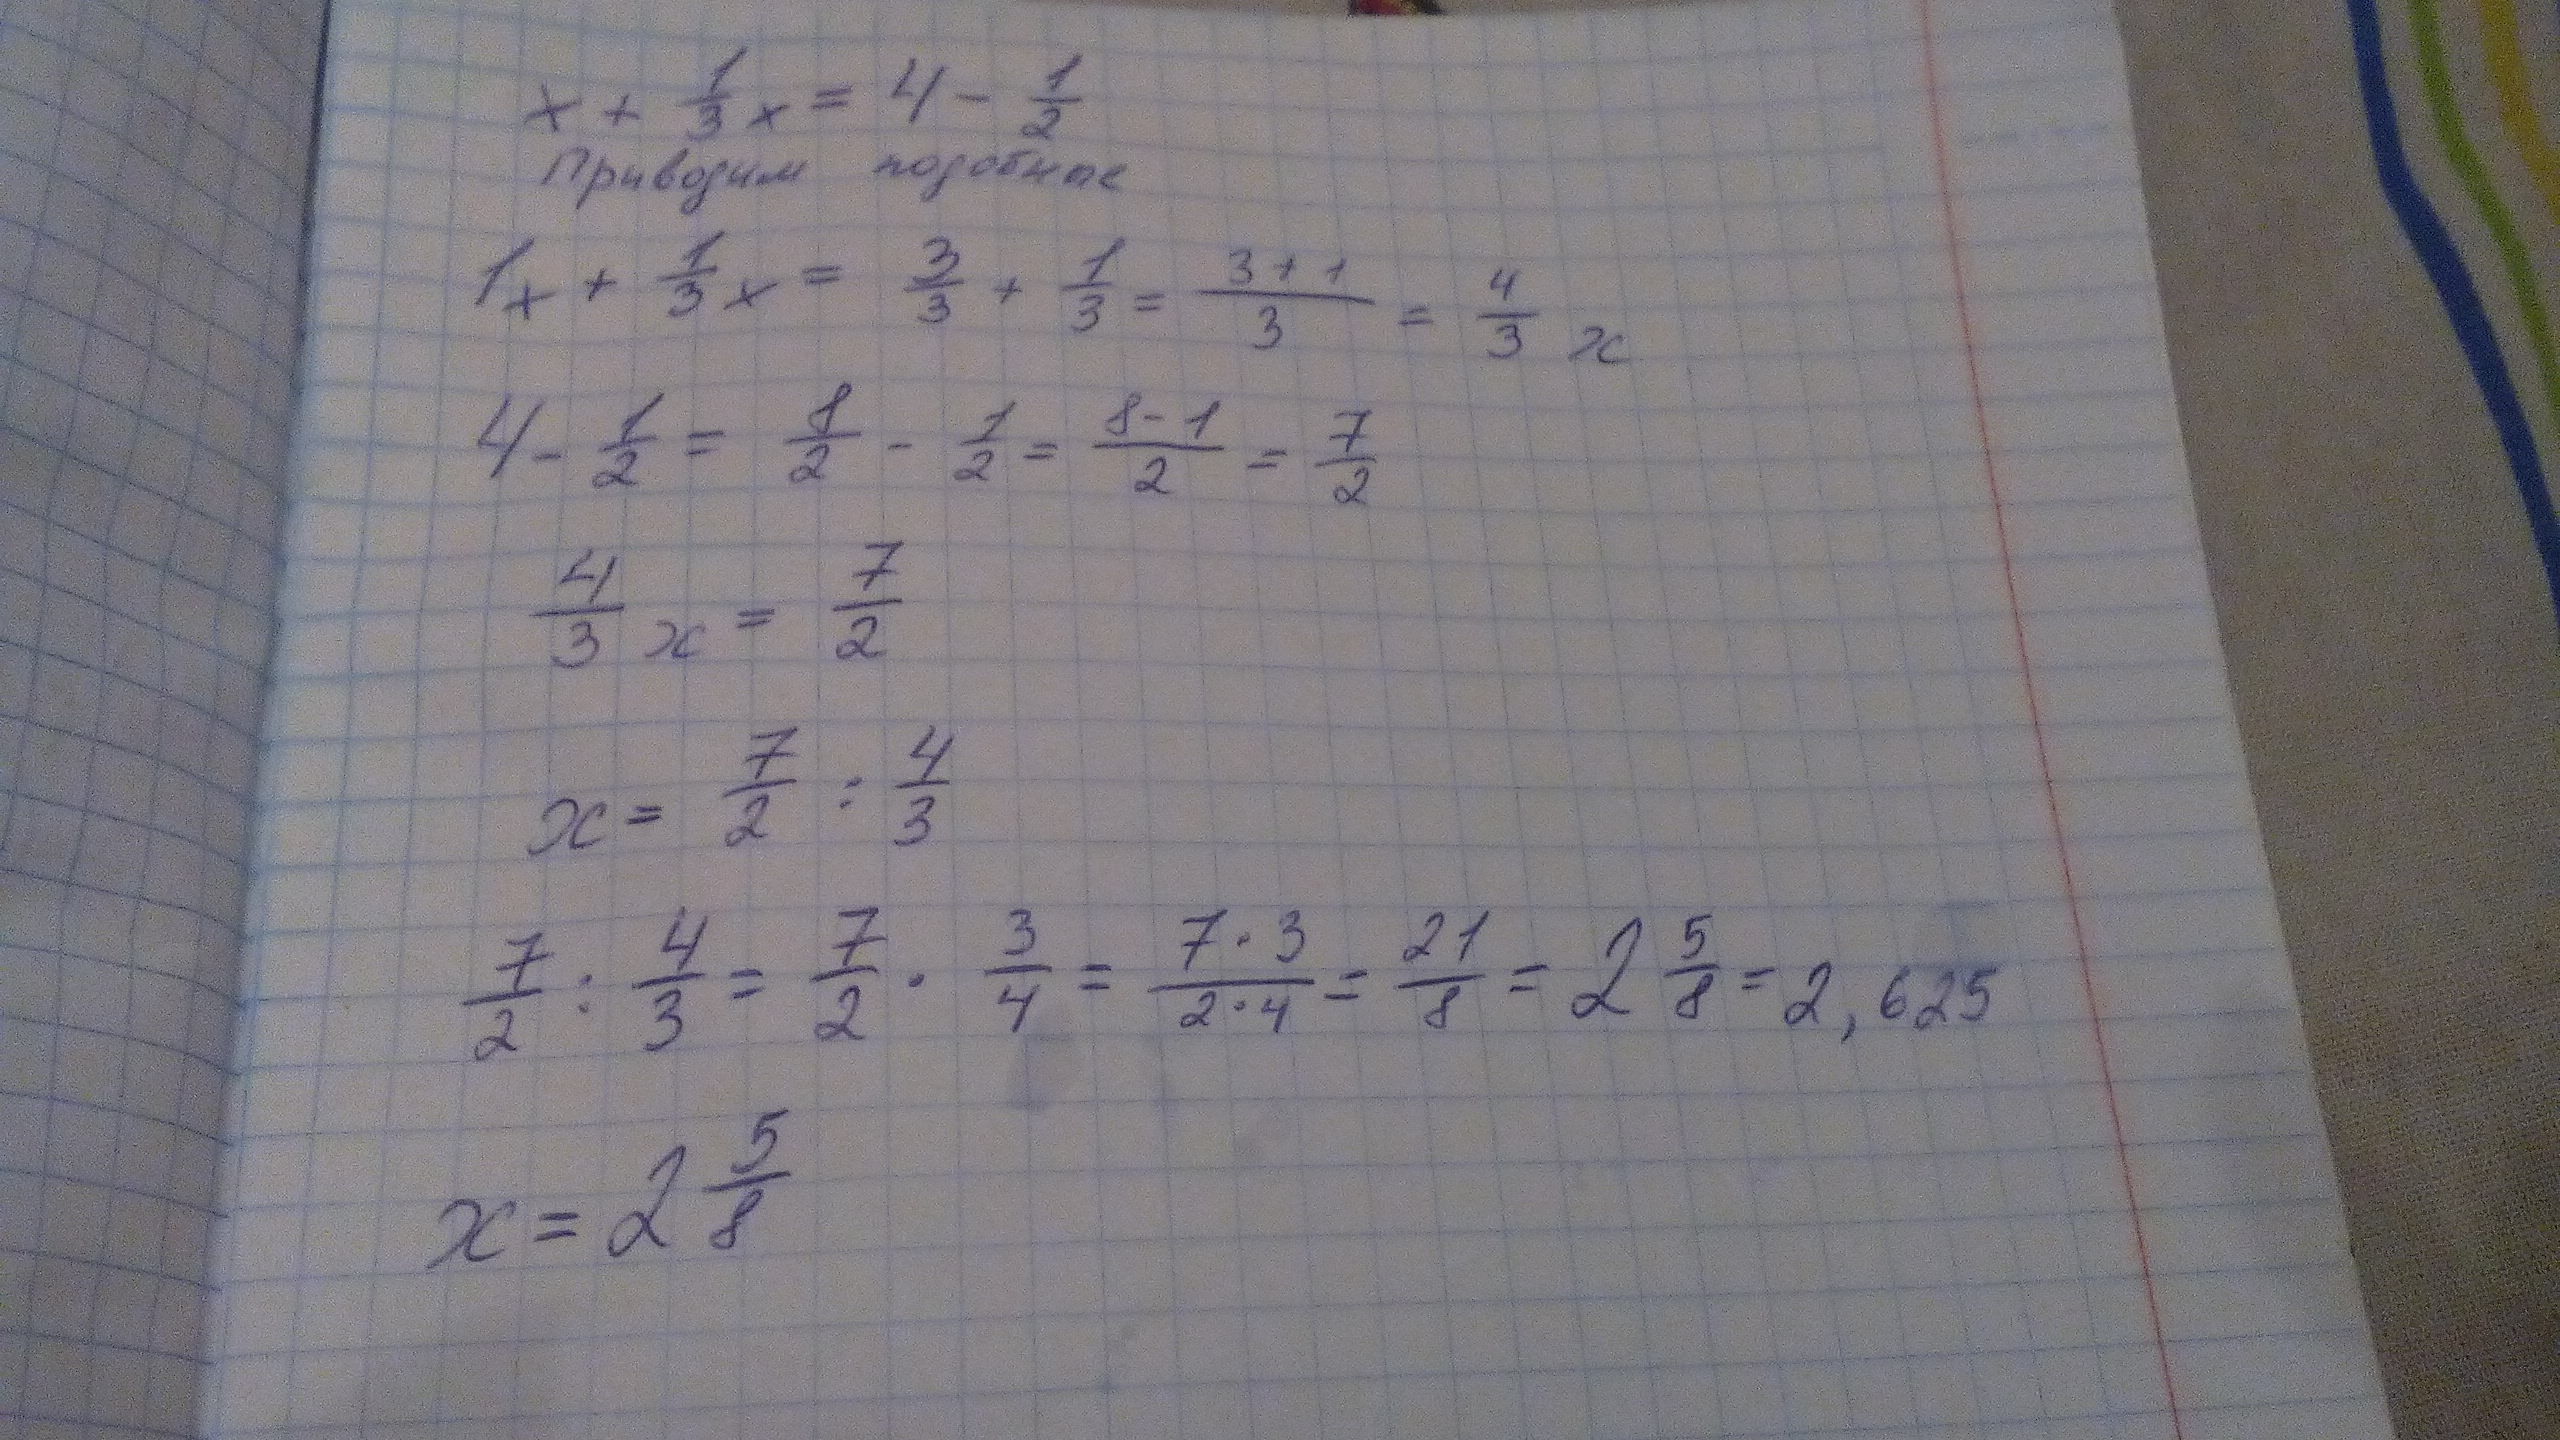 x + 1/3 x = 4 - 1/2
Приводим подобные
1x + 1/3 x = 3/3 + 1/3 = 3+1/3 = 4/3 x
4 - 1/2 = 8/2 - 1/2 = 8-1/2 = 7/2
4/3 x = 7/2
x = 7/2 : 4/3
7/2 : 4/3 = 7/2 · 3/4 = 7·3/2·4 = 21/8 = 2 5/8 = 2,625
x = 2 5/8